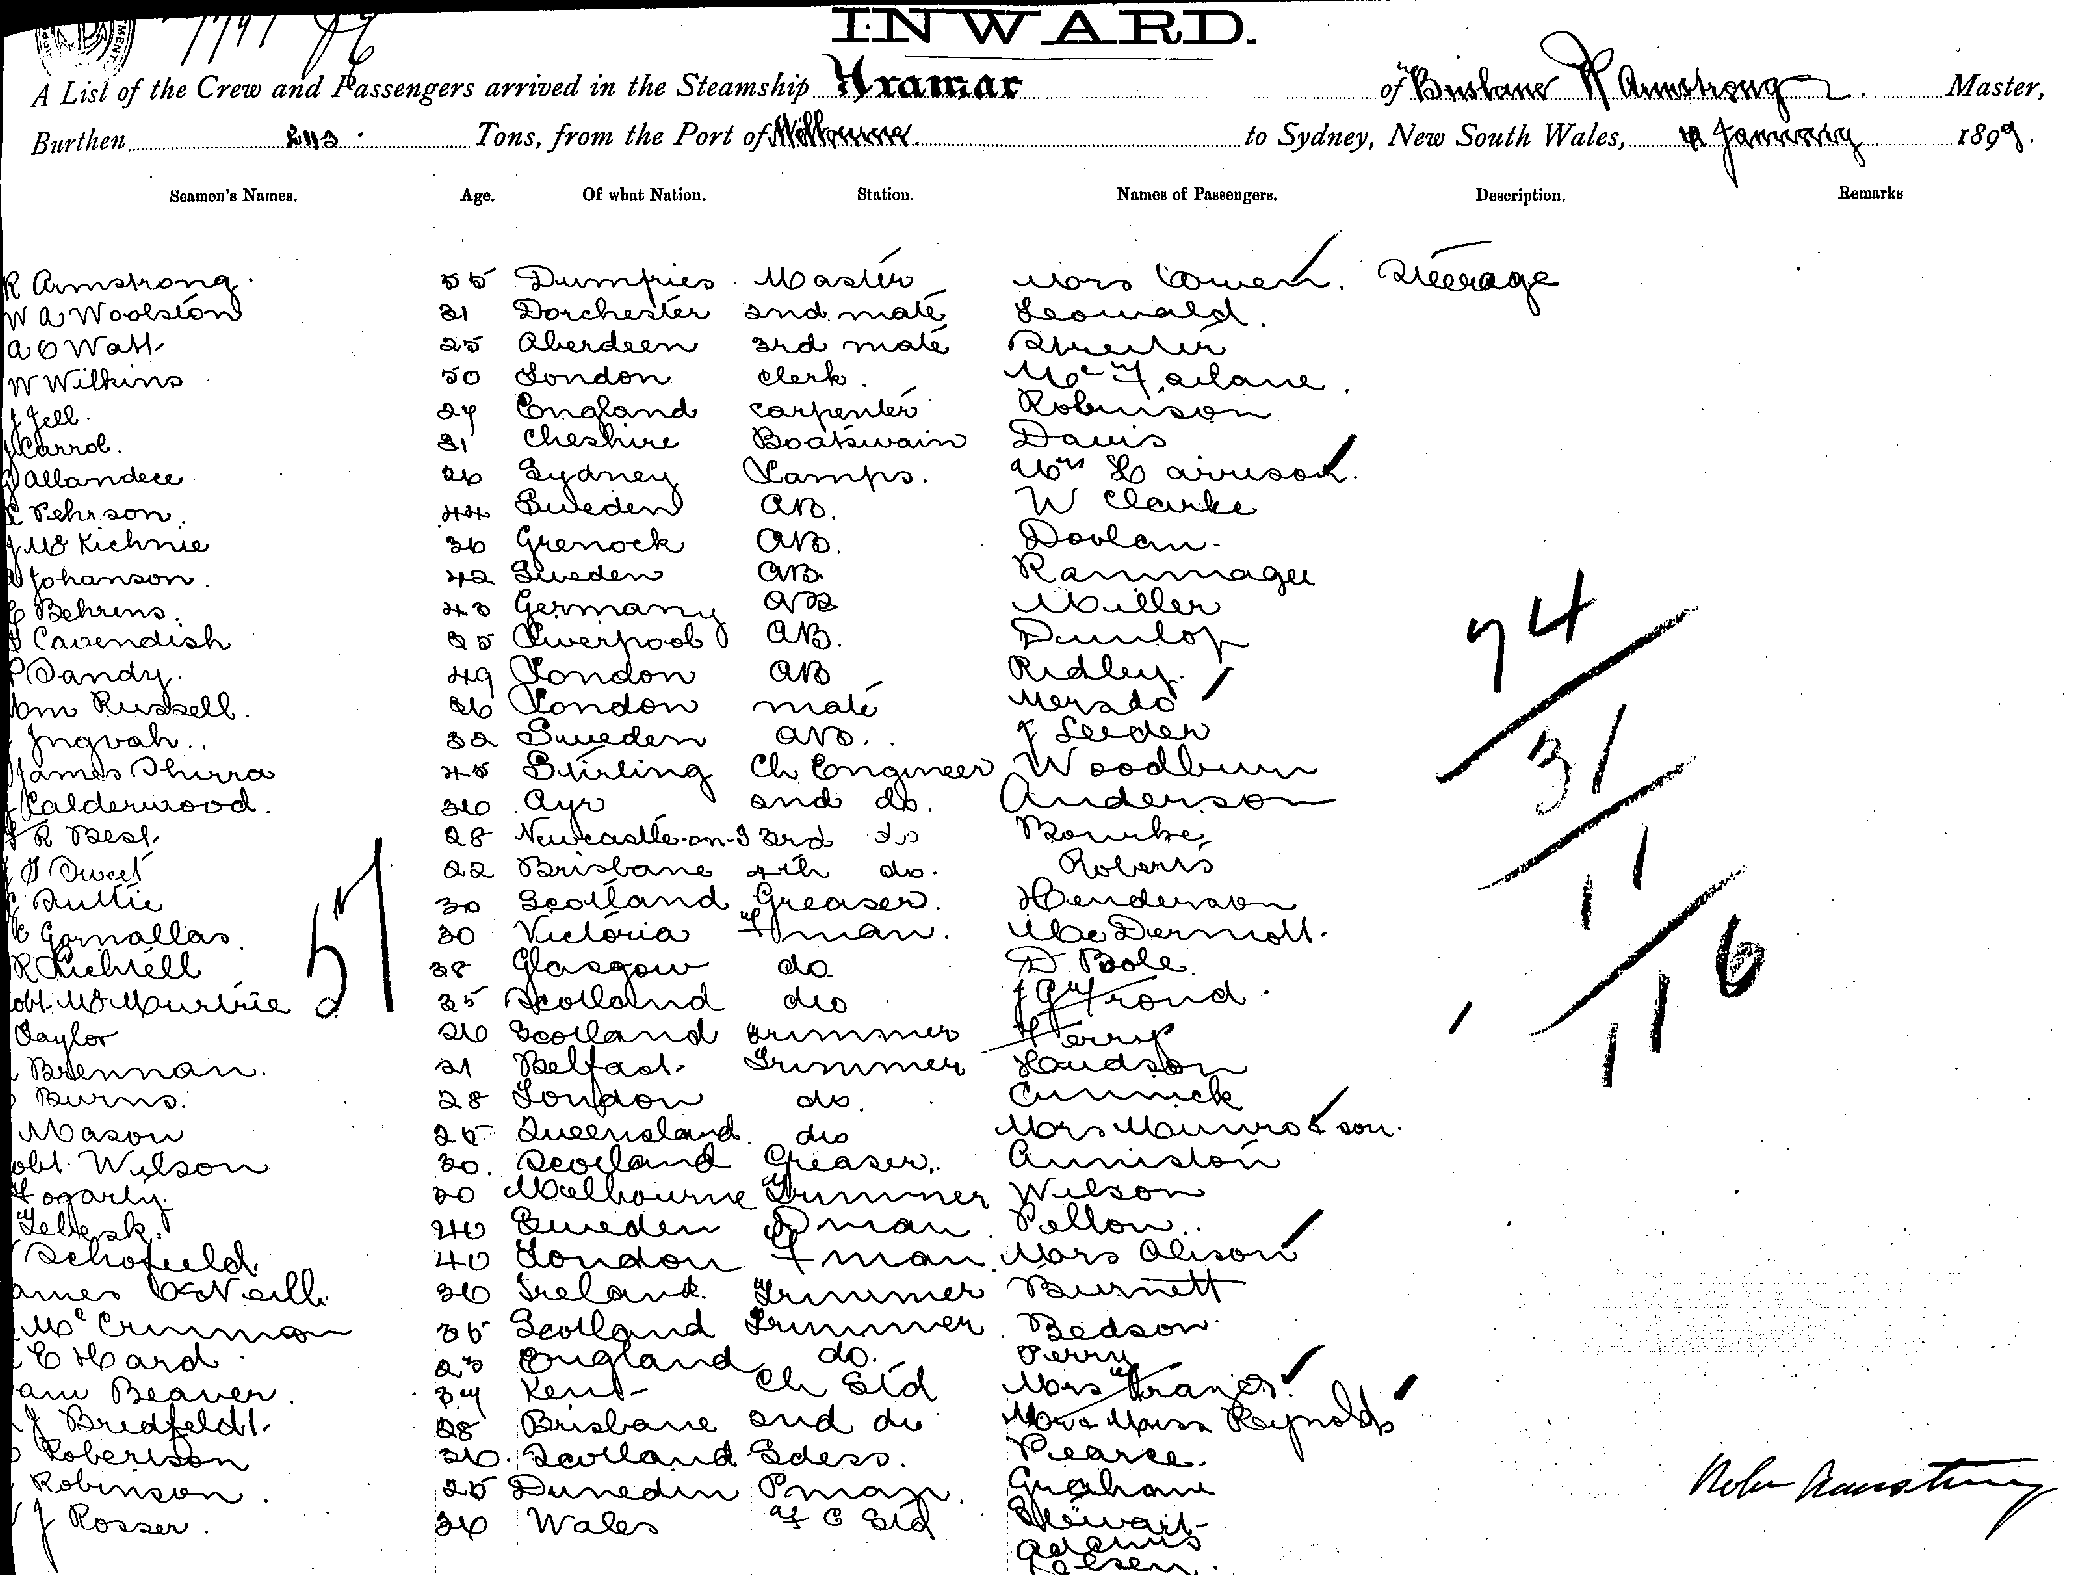 INWARD.
A List of the Crew and Passengers arrived in the Steamship Aramac of Brisbane R Armstrong Master,
Burthen 2113 Tons, from the Port of Melbourne to Sydney, New South Wales, January 1899.
Seamen's Names. Age. Of what Nation. Station. Names of Passengers. Description. Remarks
R Armstrong. 55 Dumfries Master Mrs Cowen. Steerage
W A Woolston 31 Dorchester 2nd mate Leowald.
A O Watt 25 Aberdeen 3rd mate Streeter
W Wilkins 50 London clerk. McFarlane.
J Jell. 27 England carpenter Robinson
Carrol. 31 Cheshire Boatswain Davis
Allandece 26 Sydney Lamps. Mrs Harrison.
Pehrson. 44 Sweden AB. W Clarke
J McKichnie 36 Grenock AB. Doolan.
Johanson. 42 Sweden AB Rammage
C Behrens. 43 Germany AB Miller
Cavendish 25 Liverpool AB. Dunlop
P Dandy. 49 London AB Ridley.
Wm Russell. 26 London mate
Ingvah.. 32 Sweden AB. J Leeder
James Shirra 45 Stirling Ch Engineer Woodburn
J Calderwood. 36 Ayr 2nd do. Anderson
R Best. 28 Newcastle-on-T 3rd do Bourke
J S Sweet 22 Brisbane 4th do. Roberts
Suttie 30 Scotland Greaser. Henderson
Gornallas. 30 Victoria Fman. McDermott.
R 38 Glasgow do D Bole.
Robt McMurtrie 35 Scotland do
57
Taylor 26 Scotland Trimmer Ferry
Brennan. 21 Belfast. Trimmer Hudson
Burns. 28 London do. Cunnick
Mason 25 Queensland. do Mrs Munro & son.
Robt Wilson 30. Scotland Greaser. Anniston
Fogarty. 20 Melbourne Trimmer Wilson
40 Sweden Fman Pellow.
Schofield 40 London Fman. Mrs Alison
James O'Neill. 36 Ireland. Trimmer Burnett
McCrimmon 35 Scotland Trimmer. Bedson
E Hard 23 England do. Perry
Sam Beaver. 34 Kent Ch Std Mrs Francis.
J Bredfeldt. 28 Brisbane 2nd do Mr & Miss Reynolds
Robertson 36. Scotland Sdess. Pearce.
Robinson. 25 Dunedin Pman. Graham
J Rosser. 36 Wales F C Std Stewart
Adams
Olsen.
74
31
11
116
Robt Armstrong